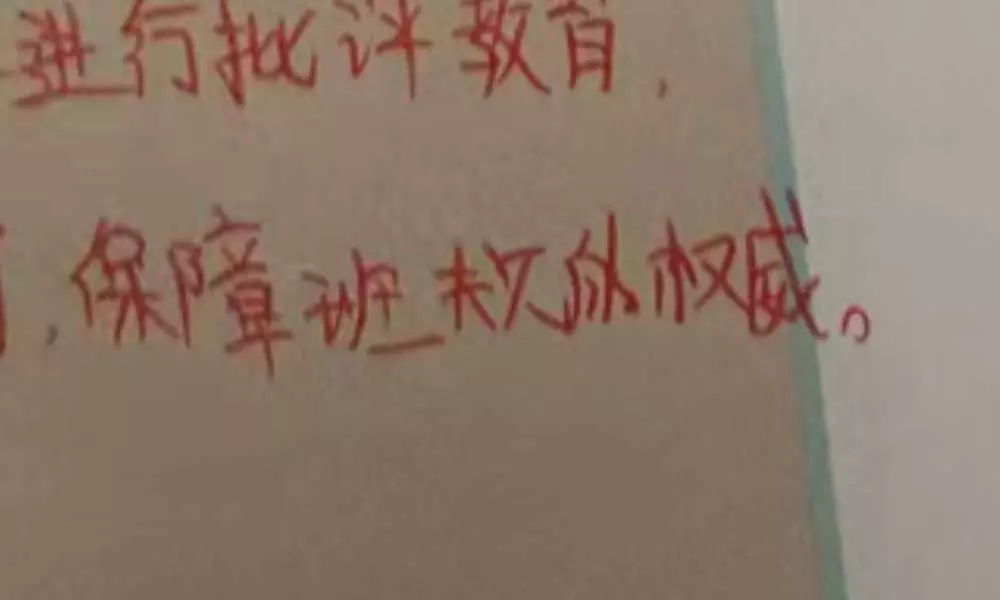 进行批评教育,
,保障班规的权威。